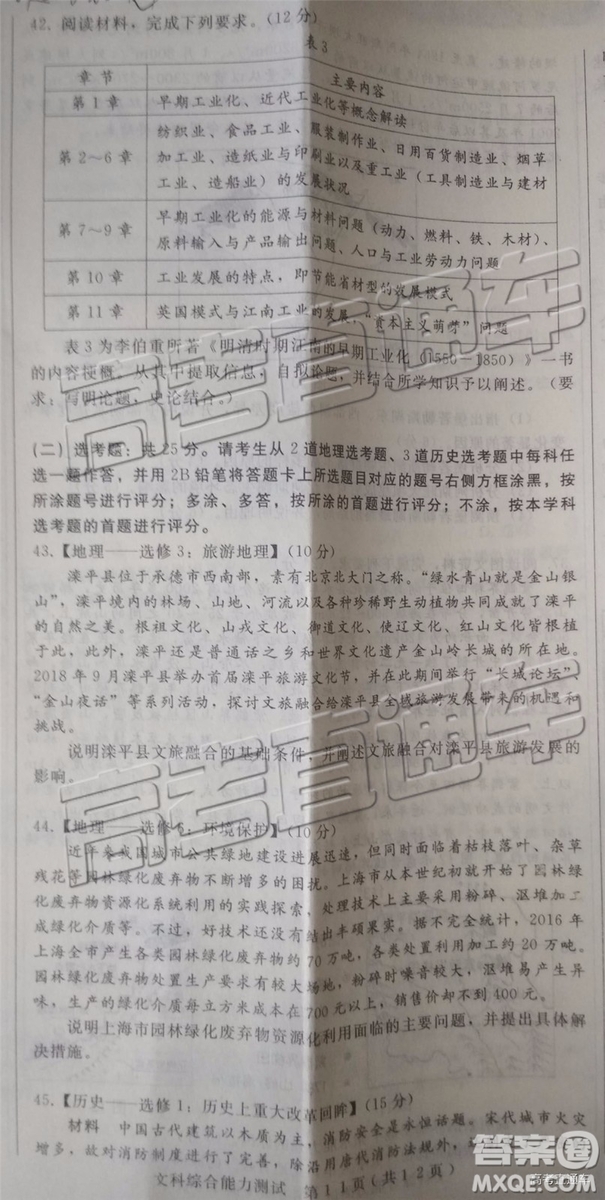 42. 阅读材料，完成下列要求。（12分）
表3
章节 主要内容
第1章 早期工业化、近代工业化等概念解读
纺织业、食品工业、服装制作业、日用百货制造业、烟草
第2～6章 加工业、造纸业与印刷业以及重工业（工具制造业与建材
工业、造船业）的发展状况
第7～9章 早期工业化的能源与材料问题（动力、燃料、铁、木材）、
原料输入与产品输出问题、人口与工业劳动力问题
第10章 工业发展的特点，即节能省材型的发展模式
第11章 英国模式与江南工业的发展，“资本主义萌芽”问题
表3为李伯重所著《明清时期江南的早期工业化（1550—1850）》一书
的内容梗概。从其中提取信息，自拟论题，并结合所学知识予以阐述。（要
求：写明论题，史论结合。）
（二）选考题：共25分。请考生从2道地理选考题、3道历史选考题中每科任
选一题作答，并用2B铅笔将答题卡上所选题目对应的题号右侧方框涂黑，按
所涂题号进行评分；多涂、多答，按所涂的首题进行评分；不涂，按本学科
选考题的首题进行评分。
43.【地理——选修3：旅游地理】（10分）
滦平县位于承德市西南部，素有北京北大门之称。“绿水青山就是金山银
山”，滦平境内的林场、山地、河流以及各种珍稀野生动植物共同成就了滦平
的自然之美。根祖文化、山戎文化、御道文化、使辽文化、红山文化皆根植
于此，此外，滦平还是普通话之乡和世界文化遗产金山岭长城的所在地。
2018年9月滦平县举办首届滦平旅游文化节，并在此期间举行“长城论坛”、
“金山夜话”等系列活动，探讨文旅融合给滦平县全域旅游发展带来的机遇和
挑战。
说明滦平县文旅融合的基础条件，并阐述文旅融合对滦平县旅游发展的
影响。
44.【地理——选修6：环境保护】（10分）
近年来我国城市公共绿地建设进展迅速，但同时面临着枯枝落叶、杂草
残花等园林绿化废弃物不断增多的困扰。上海市从本世纪初就开始了园林绿
化废弃物资源化系统利用的实践探索，处理技术上主要采用粉碎、沤堆加工
成绿化介质等。不过，好技术还没有结出丰硕果实。据不完全统计，2016年
上海全市产生各类园林绿化废弃物约70万吨，各类处置利用加工约20万吨。
园林绿化废弃物处置生产要求有较大场地，粉碎时噪音较大，沤堆易产生异
味，生产的绿化介质每立方米成本在700元以上，销售价却不到400元。
说明上海市园林绿化废弃物资源化利用面临的主要问题，并提出具体解
决措施。
45.【历史——选修1：历史上重大改革回眸】（15分）
材料 中国古代建筑以木质为主，消防安全是永恒话题。宋代城市火灾
增多，故对消防制度进行了完善，除沿用唐代消防法规外，
文科综合能力测试 第11页（共12页）
高考直通车
高考直通车
高考直通车
答案圈
MXQE.COM
高考直通车